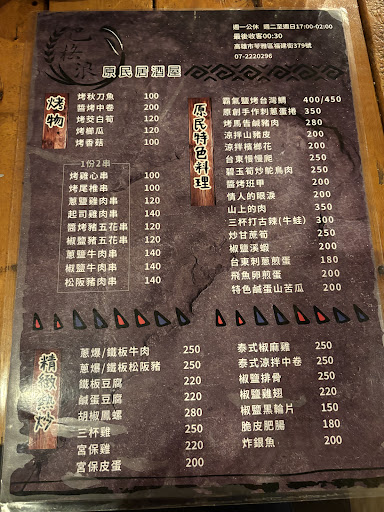 週一公休 週二至週日17:00-02:00
最後收客00:30
高雄市苓雅區福建街379號
07-2220296
原民居酒屋
烤物
烤秋刀魚 100
醬烤中卷 200
烤茭白筍 120
烤櫛瓜 120
烤香菇 100
1份2串
烤雞心串 100
烤尾椎串 100
蔥鹽雞肉串 120
起司雞肉串 140
醬烤豬五花串 120
椒鹽豬五花串 120
蔥鹽牛肉串 140
椒鹽牛肉串 140
松阪豬肉串 140
原民特色料理
霸氣鹽烤台灣鯛 400/450
原創手作刺蔥蛋捲 350
烤馬告鹹豬肉 280
涼拌山豬皮 200
涼拌檳榔花 200
台東慢慢爬 250
碧玉筍炒鴕鳥肉 250
醬烤班甲 200
情人的眼淚 200
山上的肉 350
三杯打古辣(牛蛙) 300
炒甘蔗筍 250
椒鹽溪蝦 200
台東刺蔥煎蛋 180
飛魚卵煎蛋 200
特色鹹蛋山苦瓜 200
精緻熱炒
蔥爆/鐵板牛肉 250
蔥爆/鐵板松阪豬 250
鐵板豆腐 220
鹹蛋豆腐 220
胡椒鳳螺 280
三杯雞 250
宮保雞 220
宮保皮蛋 200
泰式椒麻雞 250
泰式涼拌中卷 250
椒鹽排骨 250
椒鹽雞翅 220
椒鹽黑輪片 150
脆皮肥腸 180
炸銀魚 200